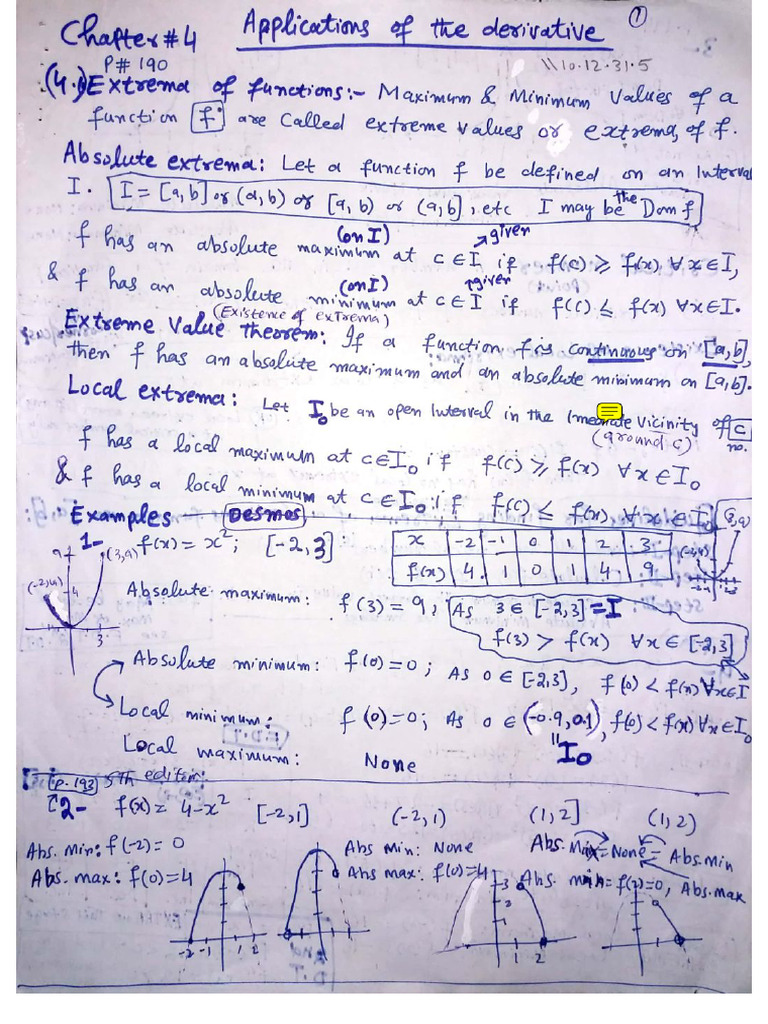 Chapter # 4 Applications of the derivative ①
P# 190 \\10.12.31.5
(4.1) Extrema of functions:- Maximum & Minimum values of a
function f are called extreme values or extrema, of f.
Absolute extrema: Let a function f be defined on an Interval
I. I = [a, b] or (a, b) or [a, b) or (a, b], etc I may be the Dom f
f has an absolute maximum (on I) at c ∈ I if f(c) ⩾ f(x), ∀ x ∈ I,
given
& f has an absolute minimum (on I) at c ∈ I if f(c) ≤ f(x) ∀ x ∈ I.
given
(Existence of extrema)
Extreme Value theorem: If a function f is continuous on [a, b],
then f has an absolute maximum and an absolute minimum on [a, b].
Local extrema: Let I₀ be an open Interval in the Vicinity of c
(around c) no.
f has a local maximum at c ∈ I₀ if f(c) ⩾ f(x) ∀ x ∈ I₀
& f has a local minimum at c ∈ I₀ if f(c) ≤ f(x), ∀ x ∈ I₀
Examples Desmos
1- f(x) = x²; [-2, 3]
x -2 -1 0 1 2 3
f(x) 4 1 0 1 4 9
9 (3,9)
(-2,4) 4
3
Absolute maximum: f(3) = 9, As 3 ∈ [-2, 3] = I
f(3) > f(x) ∀ x ∈ [-2, 3]
Absolute minimum: f(0) = 0; As 0 ∈ [-2, 3], f(0) < f(x) ∀ x ∈ I
Local minimum: f(0) = 0; As 0 ∈ (-0.9, 0.1), f(0) < f(x) ∀ x ∈ I₀
= I₀
Local maximum: None
p. 193 5th edition:
2- f(x) = 4 - x² [-2, 1] (-2, 1) (1, 2] (1, 2)
Abs. min: f(-2) = 0 Abs min: None Abs. Max = None = Abs. min
Abs. max: f(0) = 4 Abs max: f(0) = 4 Abs. min = f(2) = 0, Abs. max
3
2
-2 -1 1 2 1 2